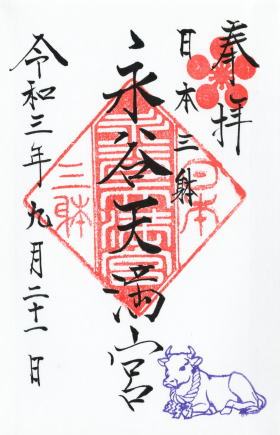 奉拝
日本三躰
永谷天満宮
令和三年九月二十一日
日本
三躰